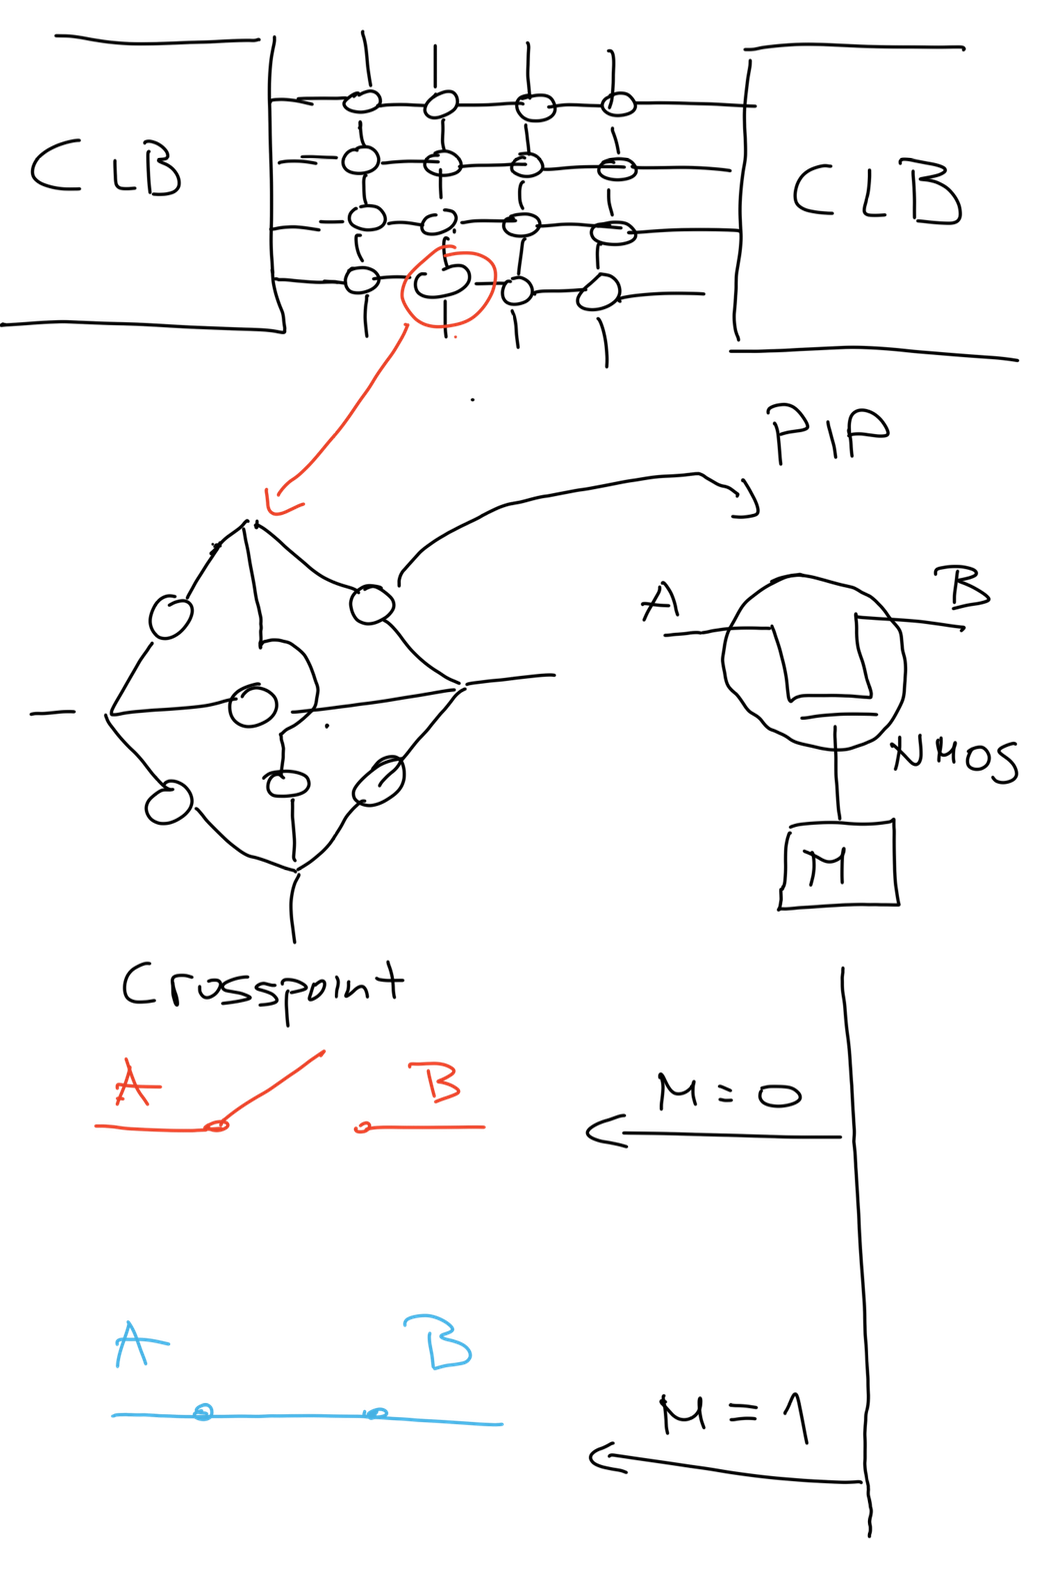 CLB
CLB
PIP
A
B
NMOS
M
Crosspoint
A
B
M = 0
A
B
M = 1